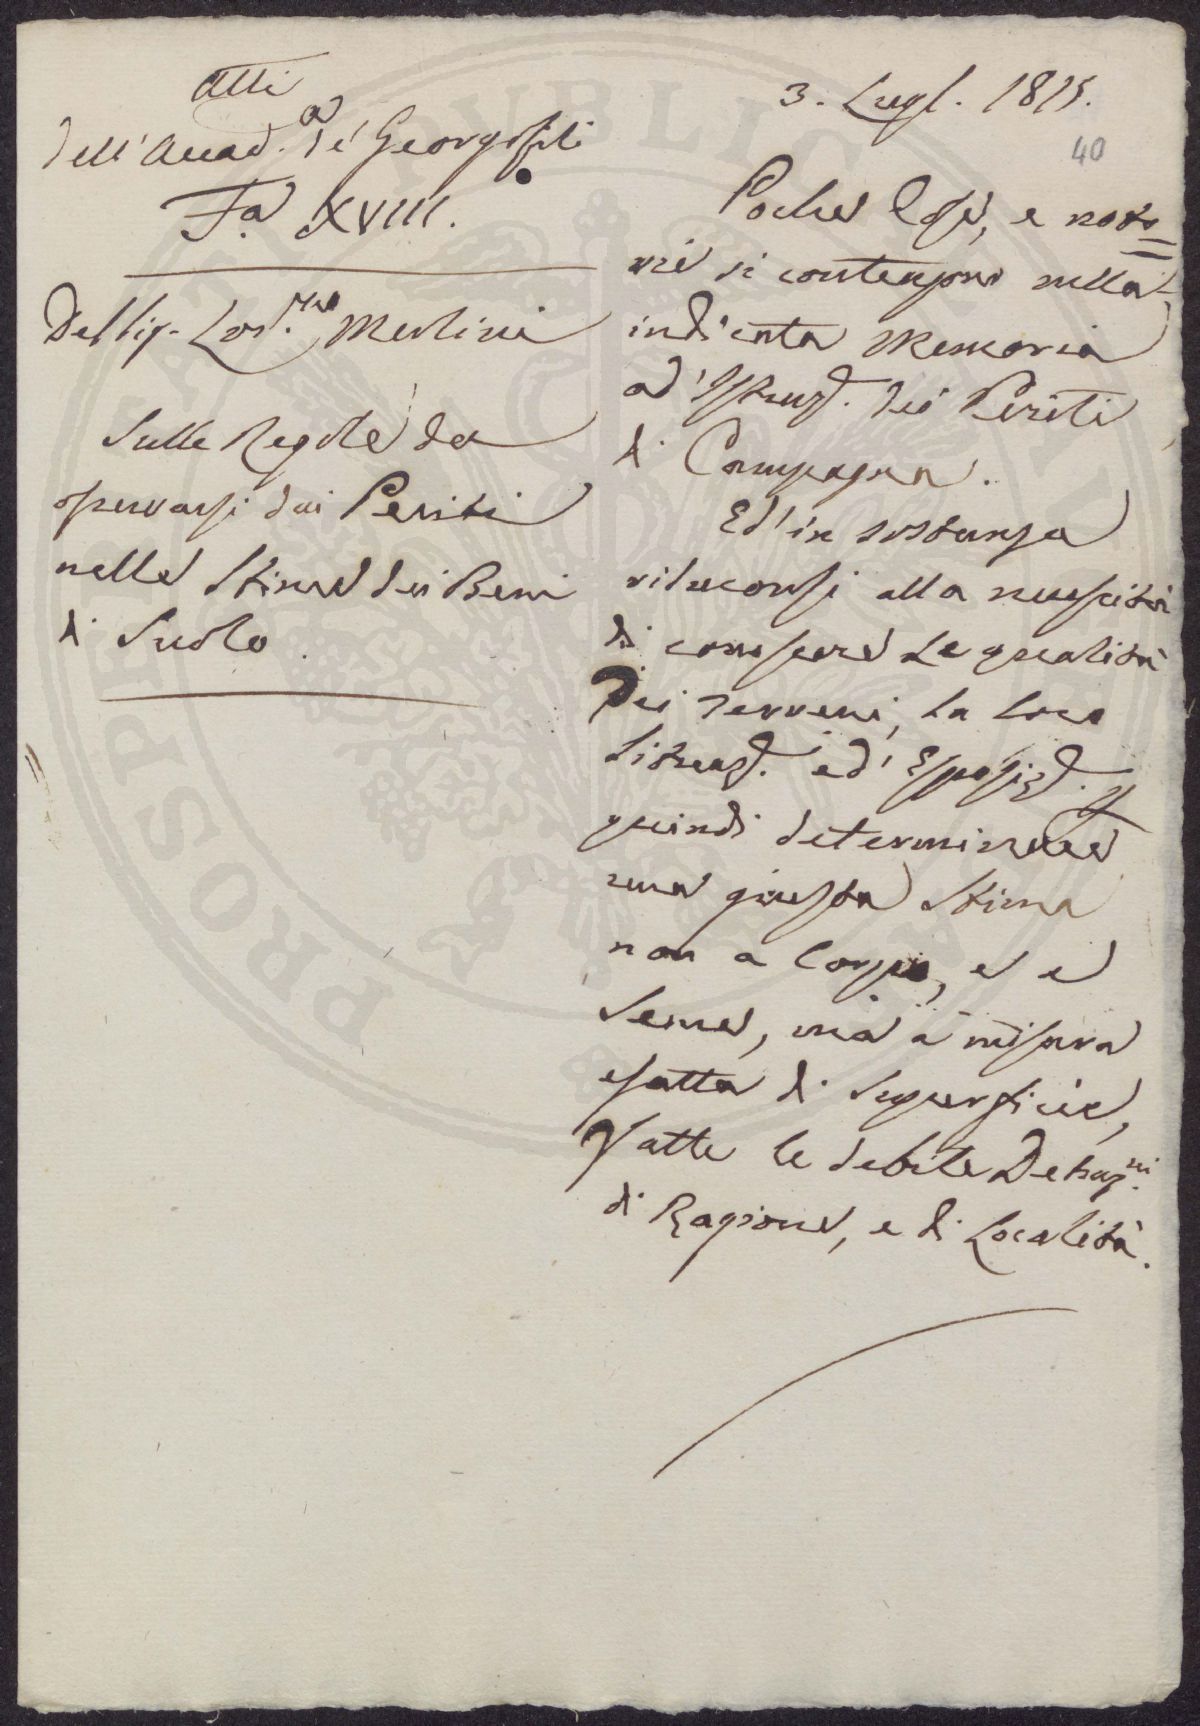 Atti
dell'Accad.a de' Georgofili
F.a XVIII.
Del Sig. Lor.zo Merlini
Sulle Regole da
osservarsi dai Periti
nelle Stime dei Beni
di Suolo.
3. Lugl. 1815.
40
Poche Cose, e noto=
rie si contengono nella
indicata Memoria
ad' Istruz. dei Periti
di Campagna.
Ed' in sostanza
riduconsi alla necessità
di conoscere le qualità
Dei Terreni, la loro
Situaz. ed' Esposiz. e
quindi determinare
una giusta Stima
non a Corpo, e a
Seme, ma a misura
esatta di Superficie,
Fatte le debite Detraz.ni
di Ragione, e di Località.